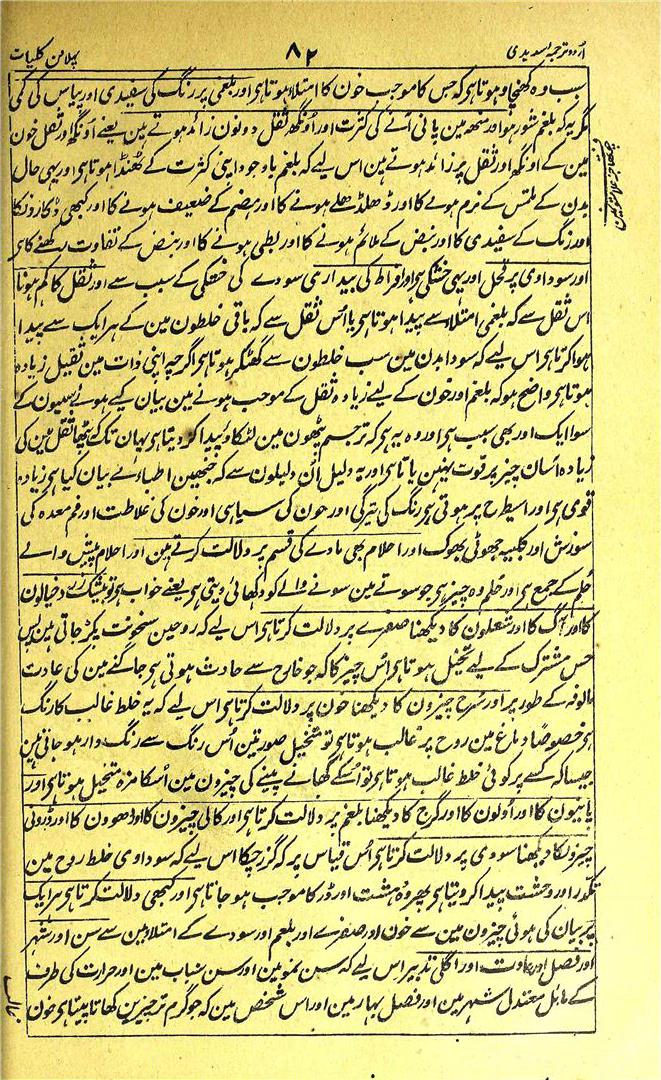 اردو ترجمہ سدیدی
۸۲
پہلا فن کلیات
سبب وہ کھنچاؤ ہوتا ہی کہ جس کا موجب خون کا امتلا ہوتا ہی اور بلغمی پر رنگ کی سفیدی اور پیاس کی کمی
مگر یہ کہ بلغم شور ہو اور منھ مین پانی آنے کی کثرت اور اونگھ اور ثقل دونون زائد ہوتے ہین یعنے اونگھ اور ثقل خون
مین کے اونگھ اور ثقل پر زائد ہوتے ہین اس لیے کہ بلغم باوجود اپنی کثرت کے ٹھنڈا ہوتا ہی اور یہی حال
بدن کے ملمس کے نرم ہونے کا اور ڈھیلے ڈھالے ہونے کا اور ہضم کے ضعیف ہونے کا اور کبھی ڈکارونکا
اور رنگ کے سفیدی کا اور نبض کے ملائم ہونے کا اور بطی ہونے کا اور نبض کے تفاوت رکھنے کا ہی
اور سوداوی پر قحل اور یہی خشکی ہی اور افراط کی بیداری سودے کی خشکی کے سبب سے اور ثقل کا کم ہونا
اس ثقل سے کہ بلغمی امتلاء سے پیدا ہوتا ہی یا اس ثقل سے کہ باقی خلطون مین کے ہر ایک سے پیدا
ہوا کرتا ہی اس لیے کہ سودا بدن مین سب خلطون سے گھٹکر ہوتا ہی اگرچہ اپنی ذات مین ثقیل زیادہ
ہوتا ہی واضح ہو کہ بلغم اور خون کے لیے زیادہ ثقل کے موجب ہونے مین بیان کیے ہوئے سببون کے
سوا ایک اور بھی سبب ہی اور وہ یہ ہی کہ تر جسم پٹھون مین لٹکاؤ پیدا کر دیتا ہی یہان تک کہ پٹھا ثقل مین کی
زیادہ آسان چیز پر قوت نہین پاتا ہی اور یہ دلیل ان دلیلون سے کہ جنھین اطباء نے بیان کیا ہی زیادہ
قوی ہی اور اسیطرح پر ہوتی ہی رنگ کی تیرگی اور خون کی سیاہی اور خون کی غلاظت اور فم معدہ کی
سوزش اور کلبیہ جھوٹی بھوک اور احلام بھی مادے کی قسم پر دلالت کرتے ہین اور احلام پیش والے
حلم کے جمع ہی اور حلم وہ چیز ہی جو سوتے مین سونے والے کو دکھائی دیتی ہی یعنے خواب ہی تو بیشک زرد خیالون
کا اور آگ کا اور شعلون کا دیکھنا صفرے پر دلالت کرتا ہی اس لیے کہ روحین سخونت پکڑ جاتی ہین پس
حس مشترک کے لیے تخیل ہوتا ہی اس چیز کا کہ جو خارج سے حادث ہوتی ہی جاگنے مین کی عادت
مالوفہ کے طور پر اور سرخ چیزون کا دیکھنا خون پر دلالت کرتا ہی اس لیے کہ یہ خلط غالب کا رنگ
ہی خصوصًا دماغ مین روح پر غالب ہوتا ہی تو تخیل صورتین اس رنگ سے رنگ دار ہو جاتی ہین
جیسا کہ کسے پر کوئی خلط غالب ہوتا ہی تو اسکے کھانے پینے کی چیزون مین اسکا مزہ متخیل ہوتا ہی اور
پانیون کا اور اولون کا اور گرج کا دیکھنا بلغم پر دلالت کرتا ہی اور کالی چیزون کا اور دھوون کا اور ڈرونی
چیزونکا دیکھنا سودی پر دلالت کرتا ہی اس قیاس پر کہ گزر چکا اس لیے کہ سوداوی خلط روح مین
تکدر اور وحشت پیدا کر دیتا ہی پھر وہ دہشت اور ڈر کا موجب ہو جاتا ہی اور کبھی دلالت کرتا ہی ہر ایک
پر بیان کی ہوئی چیزون مین سے خون اور صفرے اور بلغم اور سودے کے امتلا مین سے سن اور شہر
اور فصل اور عادت اور اگلی تدبیر اس لیے کہ سن نمو مین اور سن شباب مین اور حرارت کی طرف
کے مائل معتدل شہر مین اور فصل بہار مین اور اس شخص مین کہ جو گرم تر چیزین کھاتا پیتا ہی خون